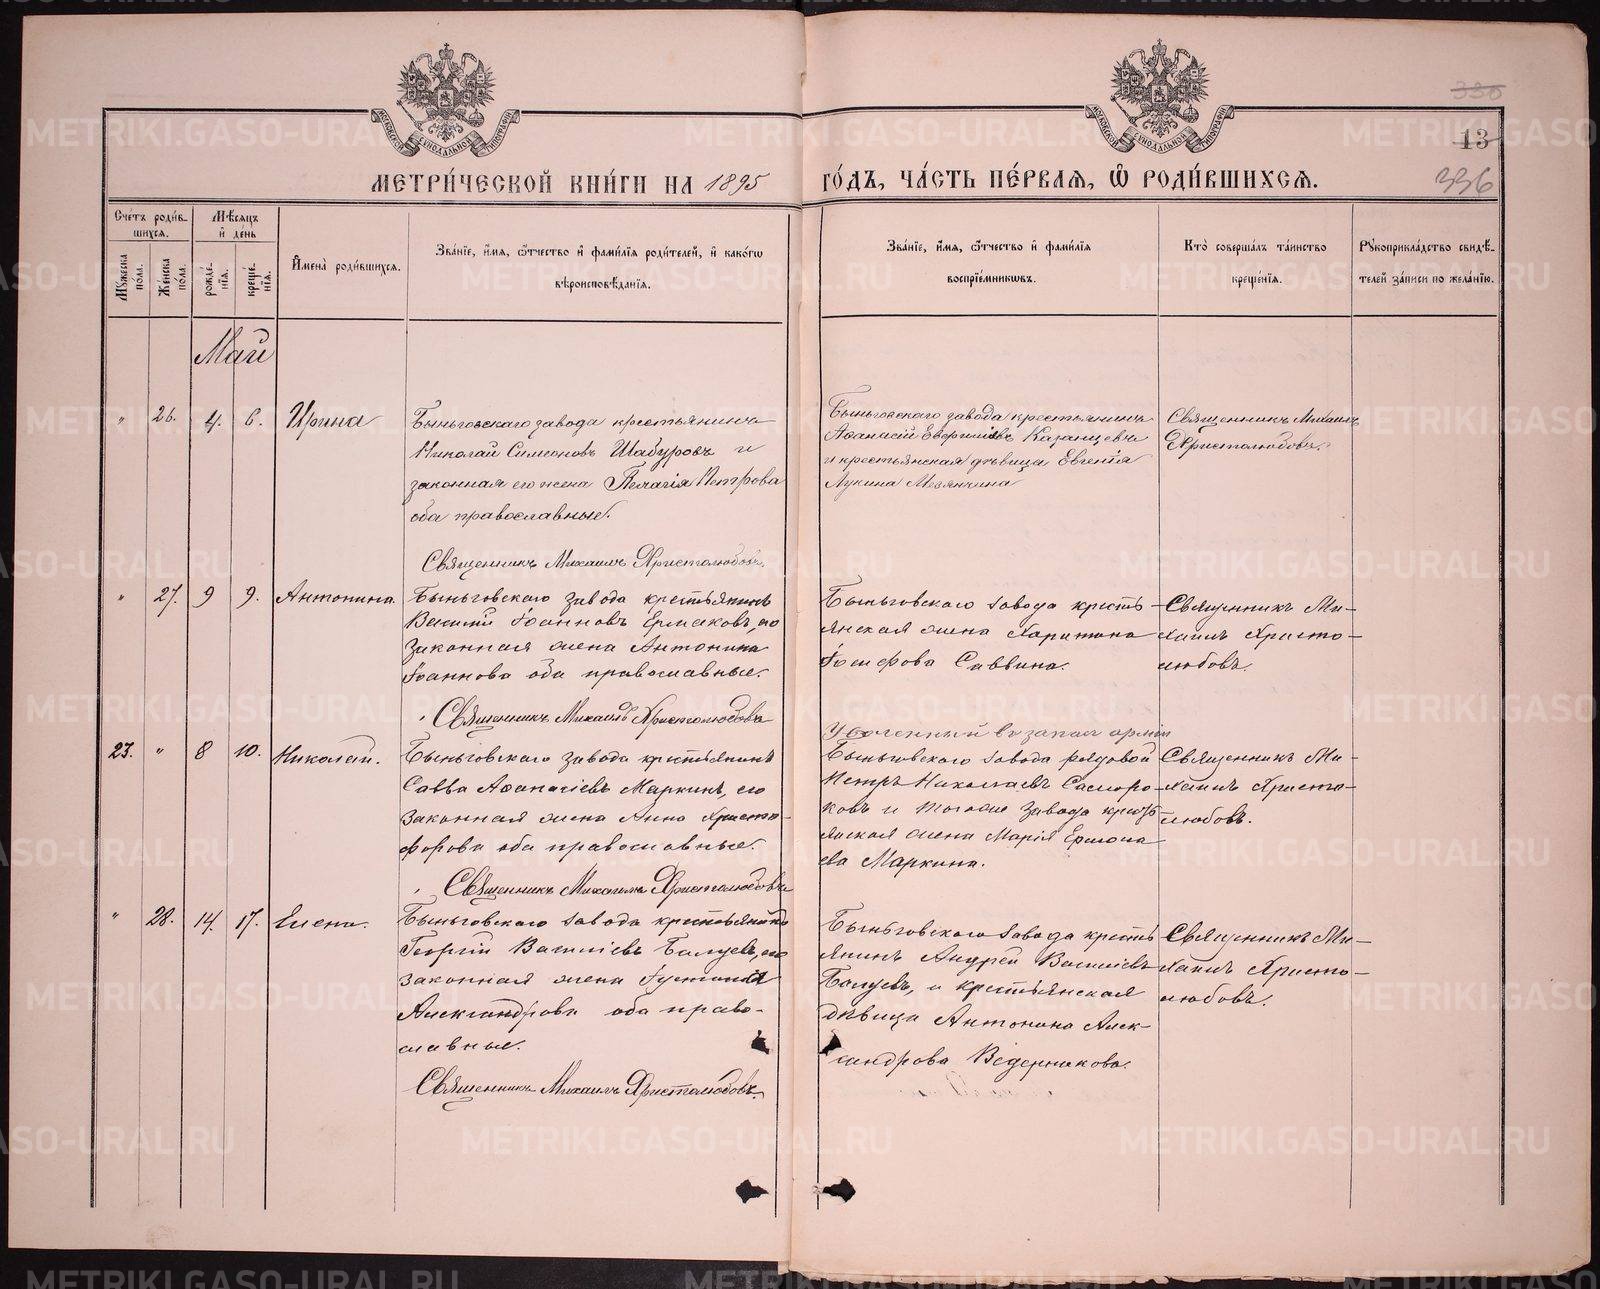 МОСКОВСКОЙ СУНОДАЛЬНОЙ ТИПОГРАФІИ
МОСКОВСКОЙ СУНОДАЛЬНОЙ ТИПОГРАФІИ
336
13
336
МЕТРИ́ЧЕСКОЙ КНИ́ГИ НА 1895 ГО́ДЪ, ЧА́СТЬ ПЕ́РВАЯ, Ѿ РОДИ́ВШИХСЯ.
Сче́тъ роди́в-
шихся.
Мѣ́сяцъ
и́ де́нь
Му́жеска
по́ла.
Же́нска
по́ла.
рожде́-
нія.
креще́-
нія.
И́мена̀ роди́вшихся.
Зва́ніе, и́мя, ѻ́тчество и́ фами́лія роди́телей, и́ како́гѡ
вѣроисповѣ́данія.
Зва́ніе, и́мя, ѻ́тчество и́ фами́лія
воспріе́мниковъ.
Кто̀ соверша́лъ та́инство
креще́нія.
Рꙋкоприкла́дство свидѣ́-
телей за́писи по жела́нію.
Май
" 26. 4. 6. Ирина
Быньговскаго завода крестьянинъ
Николай Симеоновъ Шабуровъ и
законная его жена Пелагія Петрова
оба православные.
Священникъ Михаилъ Христолюбовъ.
Быньговскаго завода крестьянинъ
Афанасій Казанцевъ
и крестьянская дѣвица Евгенія
Лукина Мезянчина
Священникъ Михаилъ
Христолюбовъ.
" 27. 9 9. Антонина.
Быньговскаго завода крестьянинъ
Василій Іоанновъ Ермаковъ, его
законная жена Антонина
Іоаннова оба православные.
Священникъ Михаилъ Христолюбовъ
Быньговскаго завода кресть-
янская жена Харитина
Іосифова Саввина.
Священникъ Ми-
хаилъ Христо-
любовъ.
23. " 8 10. Николай.
Быньговскаго завода крестьянинъ
Савва Афанасіевъ Маркинъ, его
законная жена Анна Христо-
форова оба православные.
Священникъ Михаилъ Христолюбовъ
Уволенный въ запасъ арміи
Быньговскаго завода рядовой
Петръ Николаевъ Саморо-
ковъ и тогоже завода кресть-
янская жена Марія Ермола-
ева Маркина.
Священникъ Ми-
хаилъ Христо-
любовъ.
" 28. 14. 17. Елена.
Быньговскаго завода крестьянинъ
Георгій Василіевъ Балуевъ, его
законная жена Іустинія
Александрова оба право-
славные.
Священникъ Михаилъ Христолюбовъ.
Быньговскаго завода кресть
янинъ Андрей Василіевъ
Балуевъ, и крестьянская
дѣвица Антонина Алек-
сандрова Ведерникова.
Священникъ Ми-
хаилъ Христо-
любовъ.
METRIKI.GASO-URAL.RU